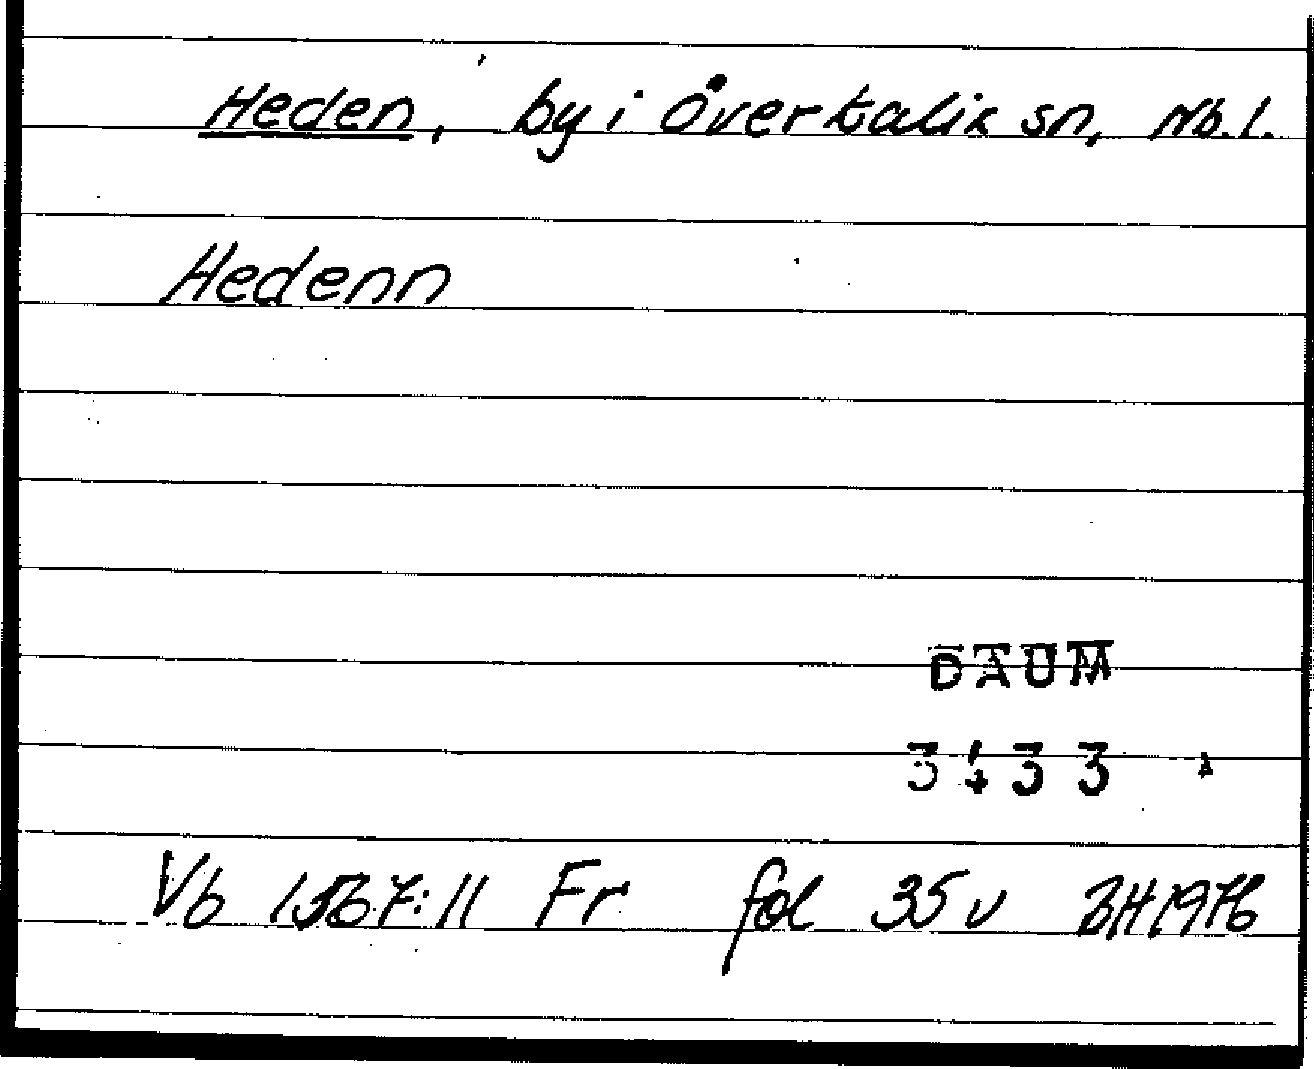 Heden, by i Överkalix sn, Nb. l.
Hedenn
DAUM
3433
Vb 1567:11 Fr fol 35 v BH 1976